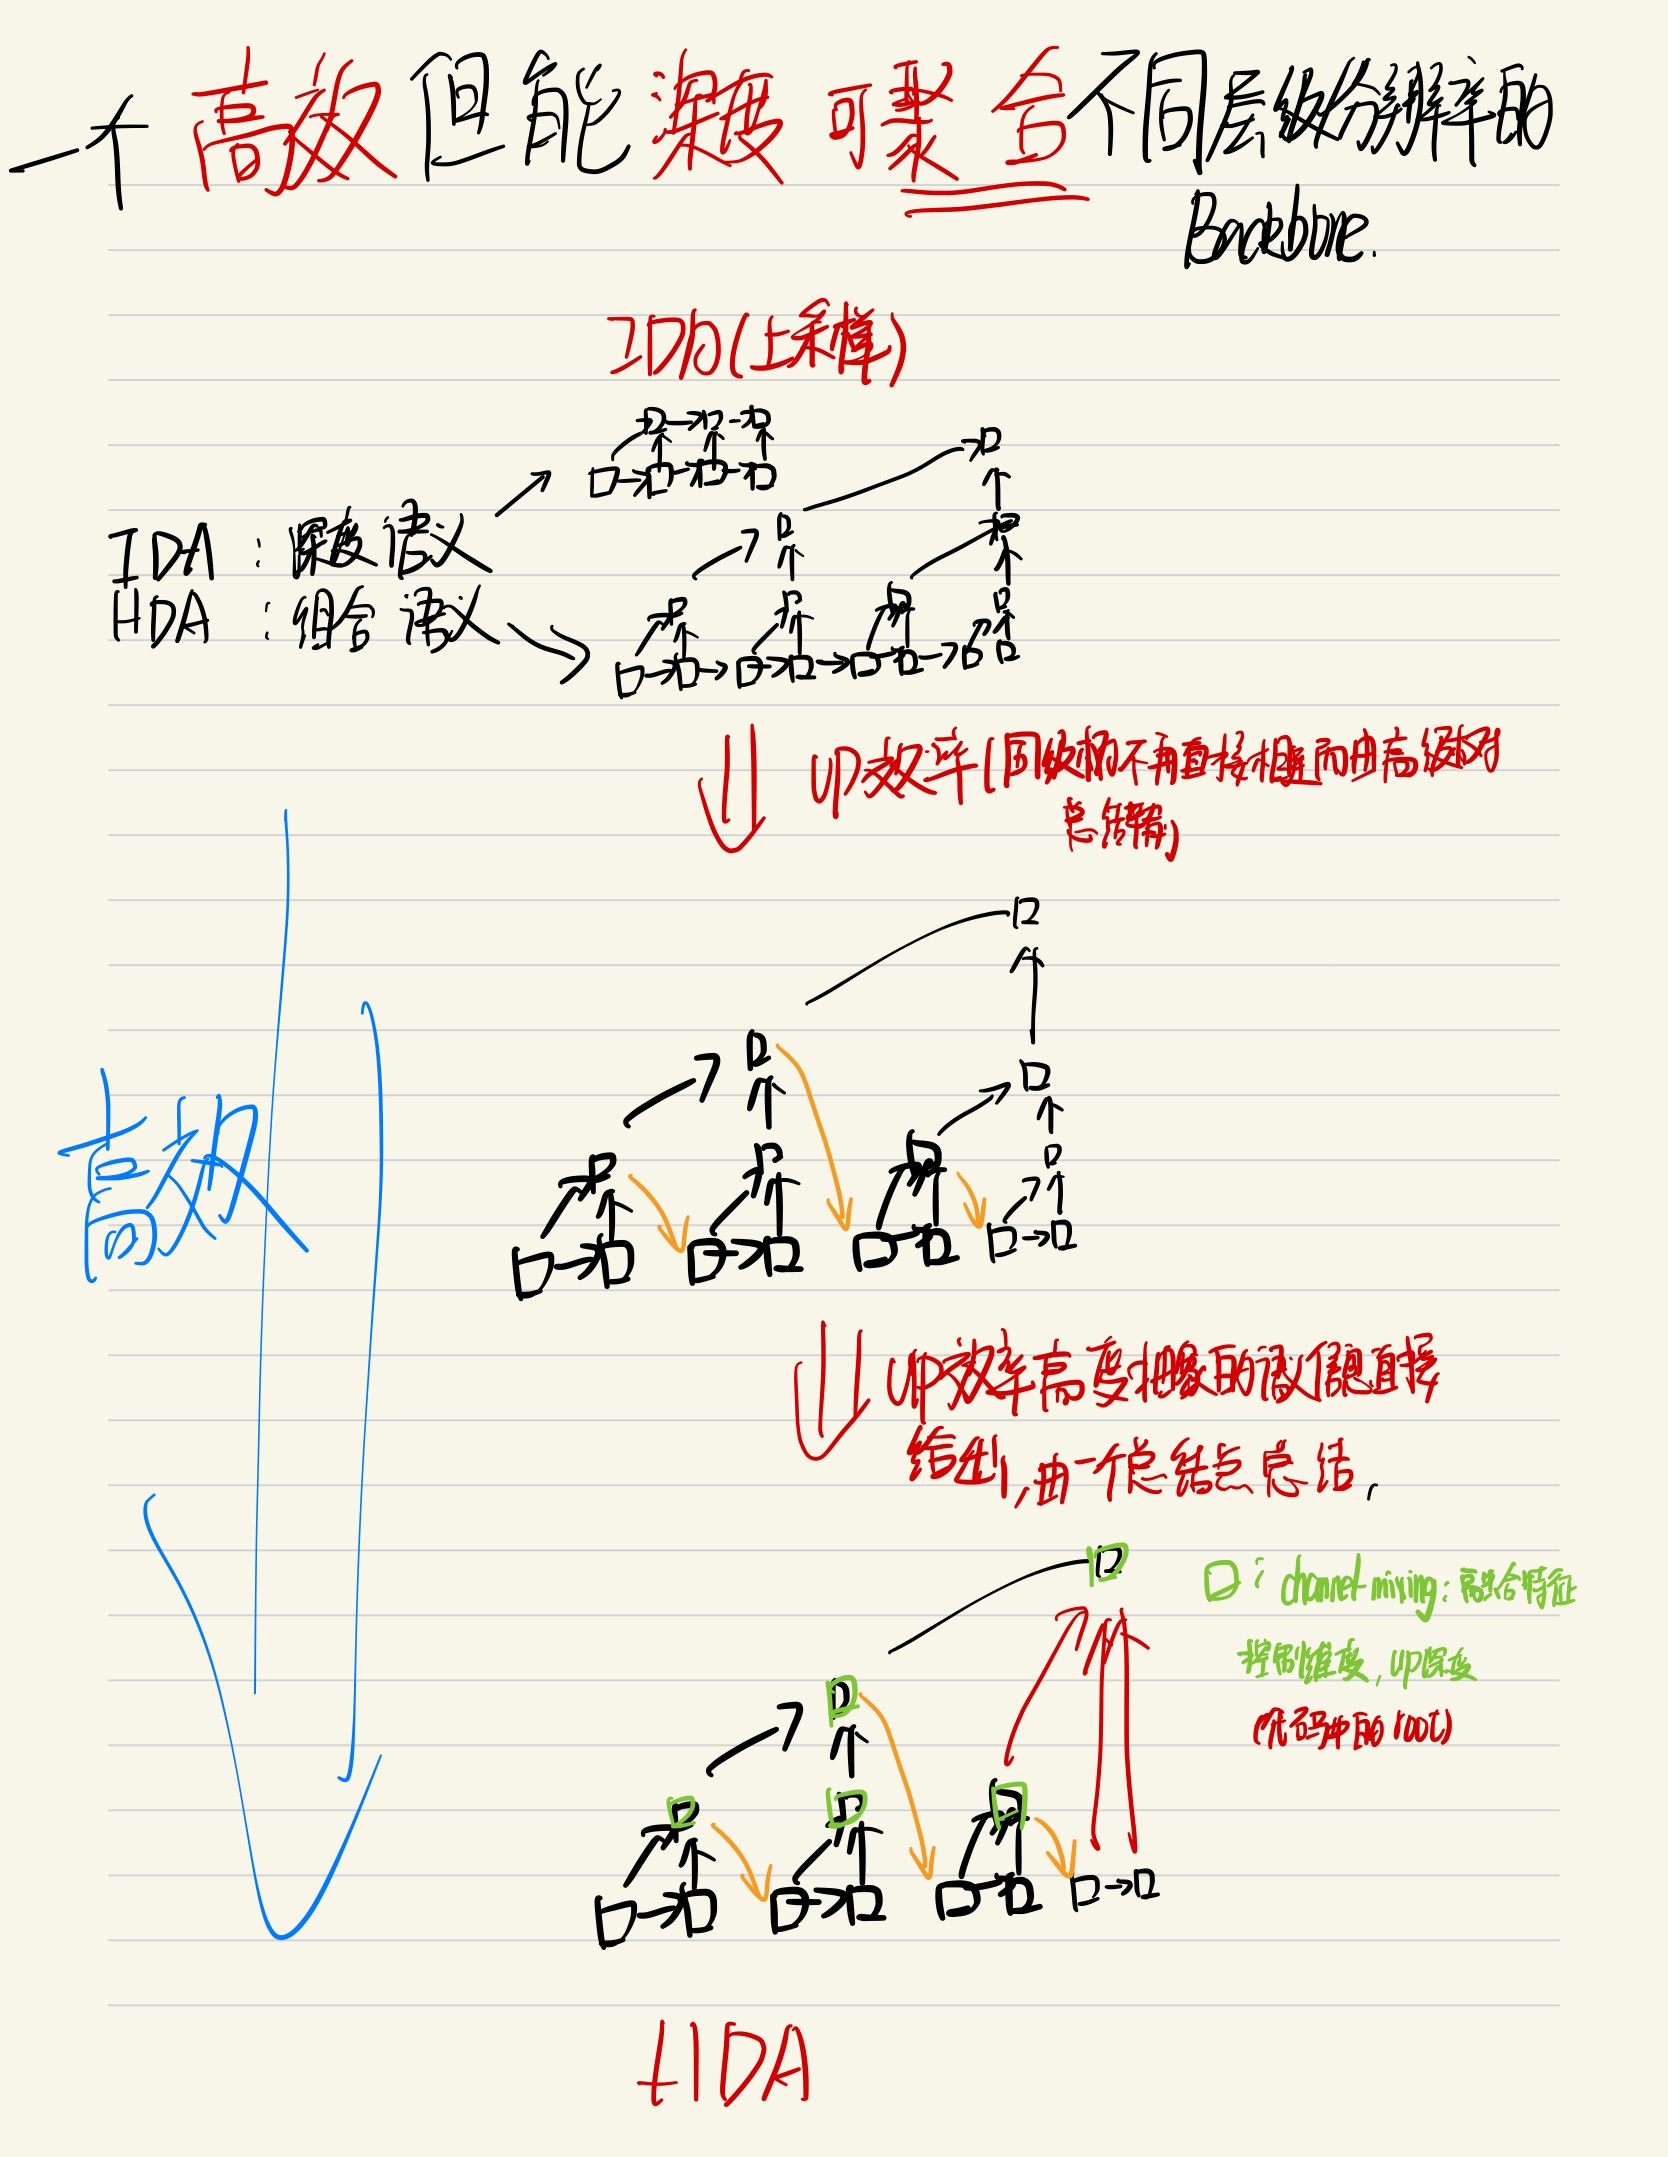 一个高效但能深度可聚合不同层级分辨率的
Backbone.
IDA(上采样)
IDA：深度语义
HDA：组合语义
UP效率(同级树不再直接相连而由高级树
总结解
高效
UP效率高度抽象的语义信息直接
给出,由一个总结点总结,
口: channel mixing: 高效融合特征
控制维度, UP深度
(代码中的root)
HDA